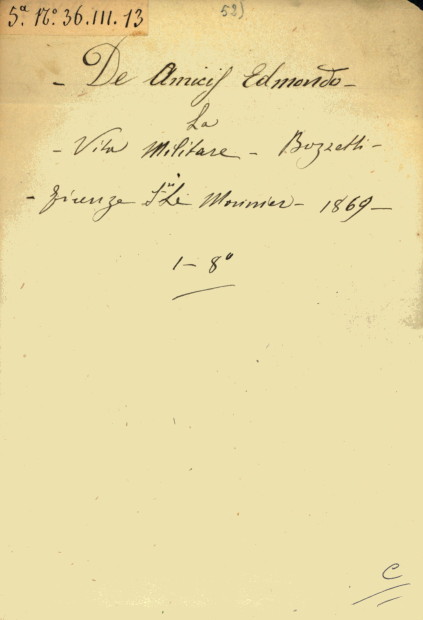 5.ª N.º 36.III.13
52)
- De Amicis Edmondo -
La
- Vita Militare - Bozzetti -
- Firenze F. Le Monnier - 1869 -
1 - 8º
C